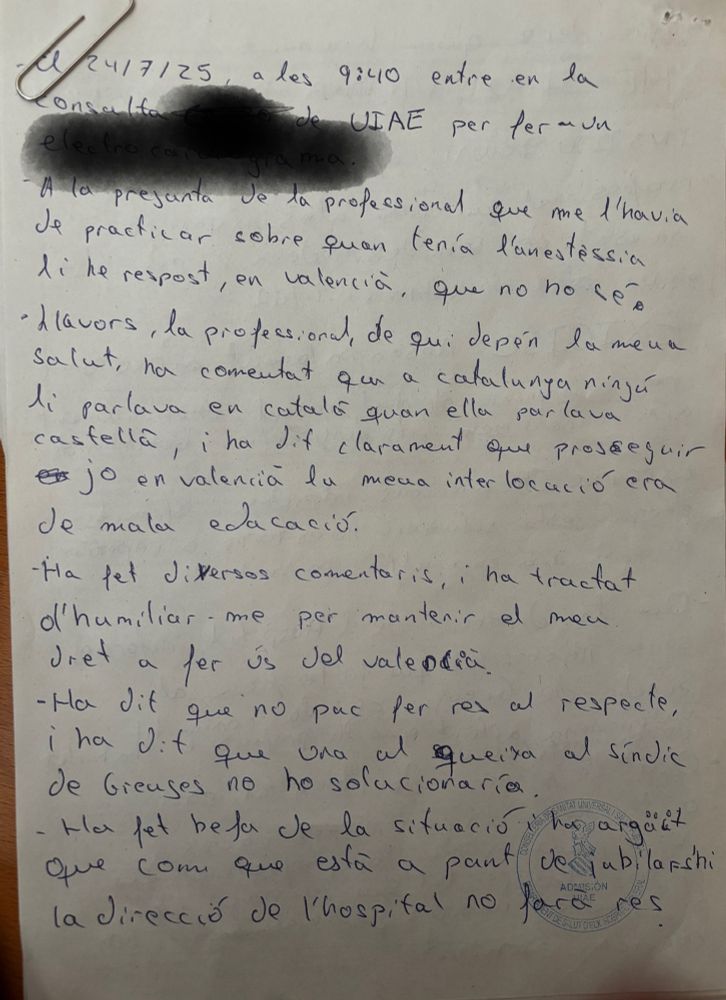 - El 24/7/25, a les 9:40 entre en la
consulta de UIAE per fer-un
electrocardiograma.
- A la pregunta de la professional que me l'havia
de practicar sobre quan tenía l'anestèssia
li he respost, en valencià, que no ho sé.
- Llavors, la professional, de qui depén la meua
salut, ha comentat que a catalunya ningú
li parlava en català quan ella parlava
castellà, i ha dit clarament que prosseguir
jo en valencià la meua interlocució era
de mala educació.
- Ha fet diversos comentaris, i ha tractat
d'humiliar-me per mantenir el meu
dret a fer ús del valencià.
- Ha dit que no puc fer res al respecte,
i ha dit que una al queixa al síndic
de Greuges no ho solucionaría.
- Ha fet befa de la situació i ha argüit
que com que està a punt de jubilar-s'hi
la direcció de l'hospital no farà res.
ADMISIÓN
UIAE